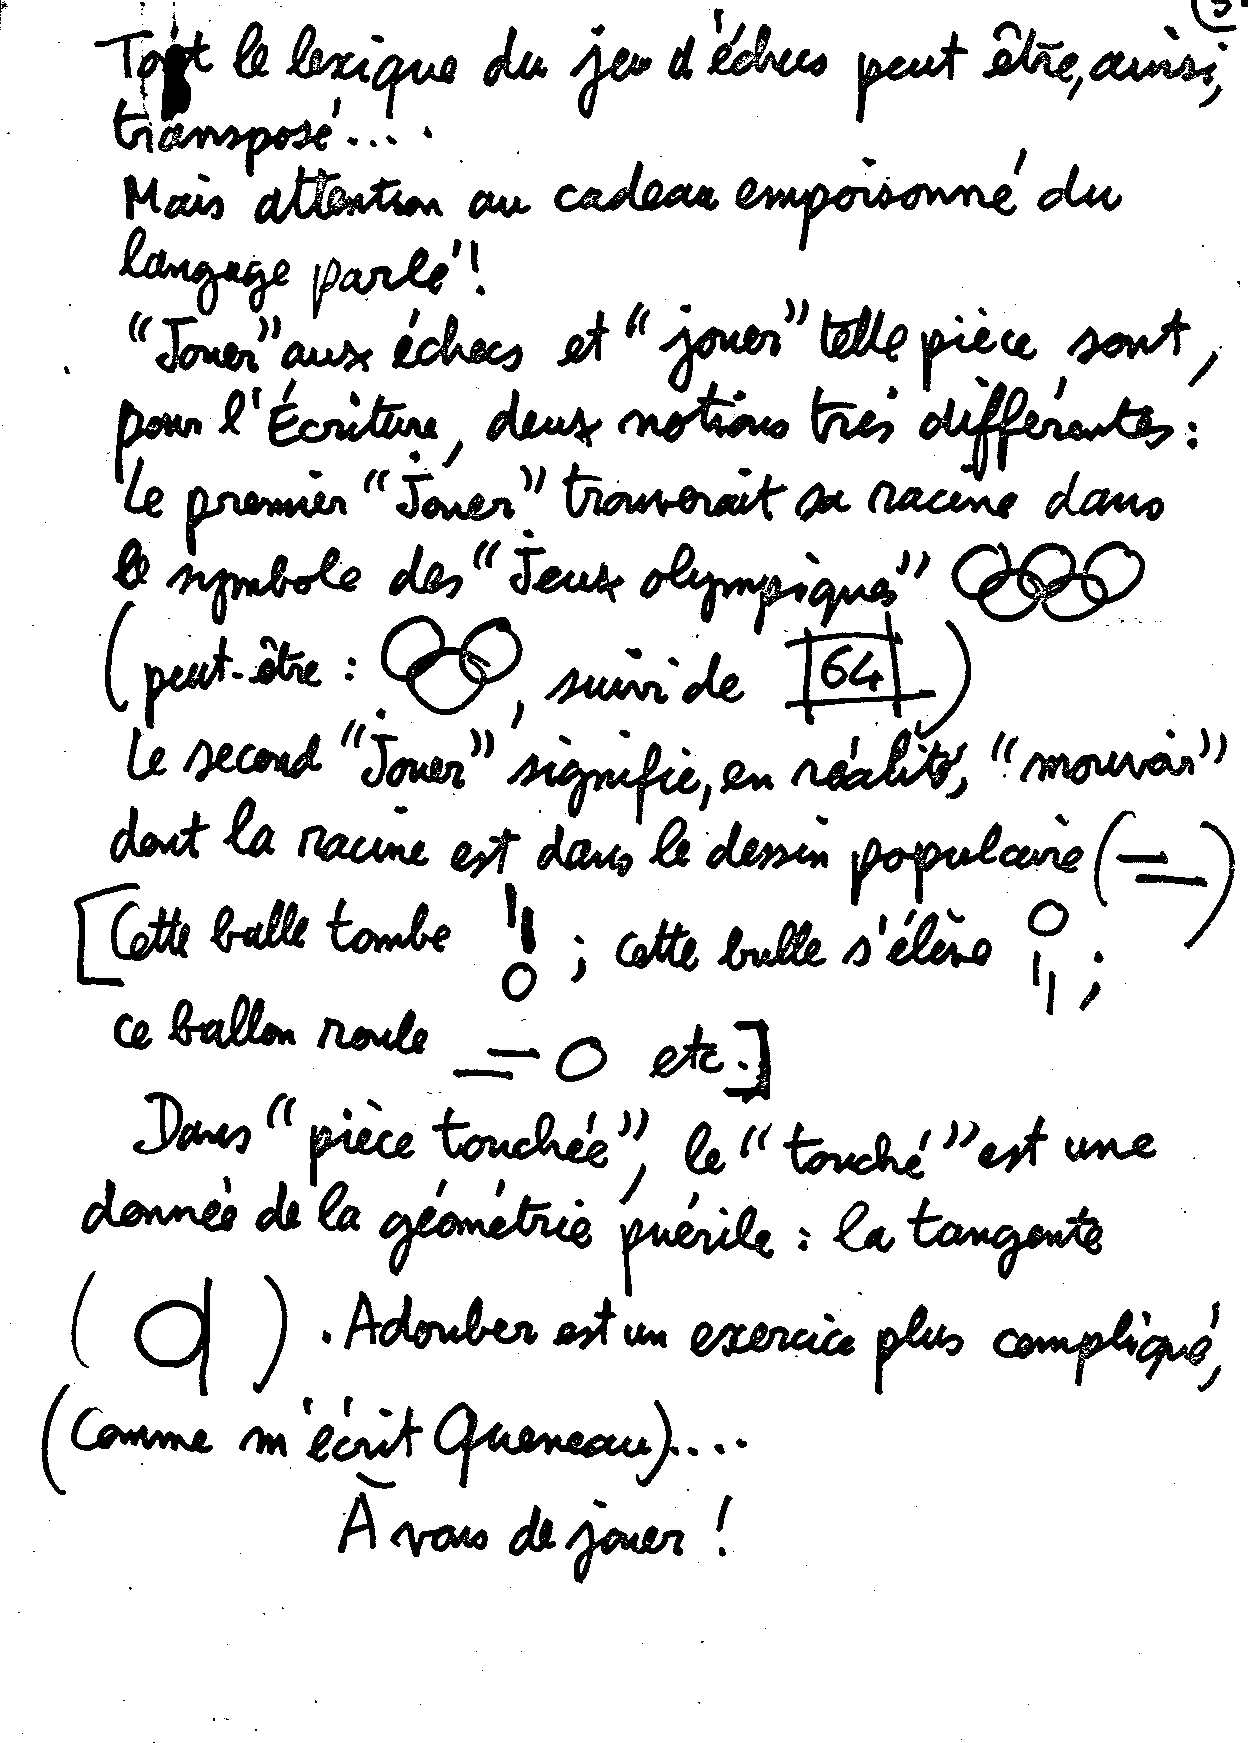 Tout le lexique du jeu d'échecs peut être, ainsi,
transposé....
Mais attention au cadeau empoisonné du
langage parlé!
"Jouer" aux échecs et "jouer" telle pièce sont,
pour l'Écriture, deux notions très différentes :
Le premier "Jouer" trouverait sa racine dans
le symbole des "Jeux olympiques"
(peut-être : , suivi de 64)
Le second "Jouer" signifie, en réalité, "mouvoir"
dont la racine est dans le dessin populaire ( )
[Cette balle tombe ; cette bulle s'élève ;
ce ballon roule etc.]
Dans "pièce touchée", le "touché" est une
donnée de la géométrie puérile : la tangente
( ). Adouber est un exercice plus compliqué,
(comme m'écrit Queneau)....
À vous de jouer !